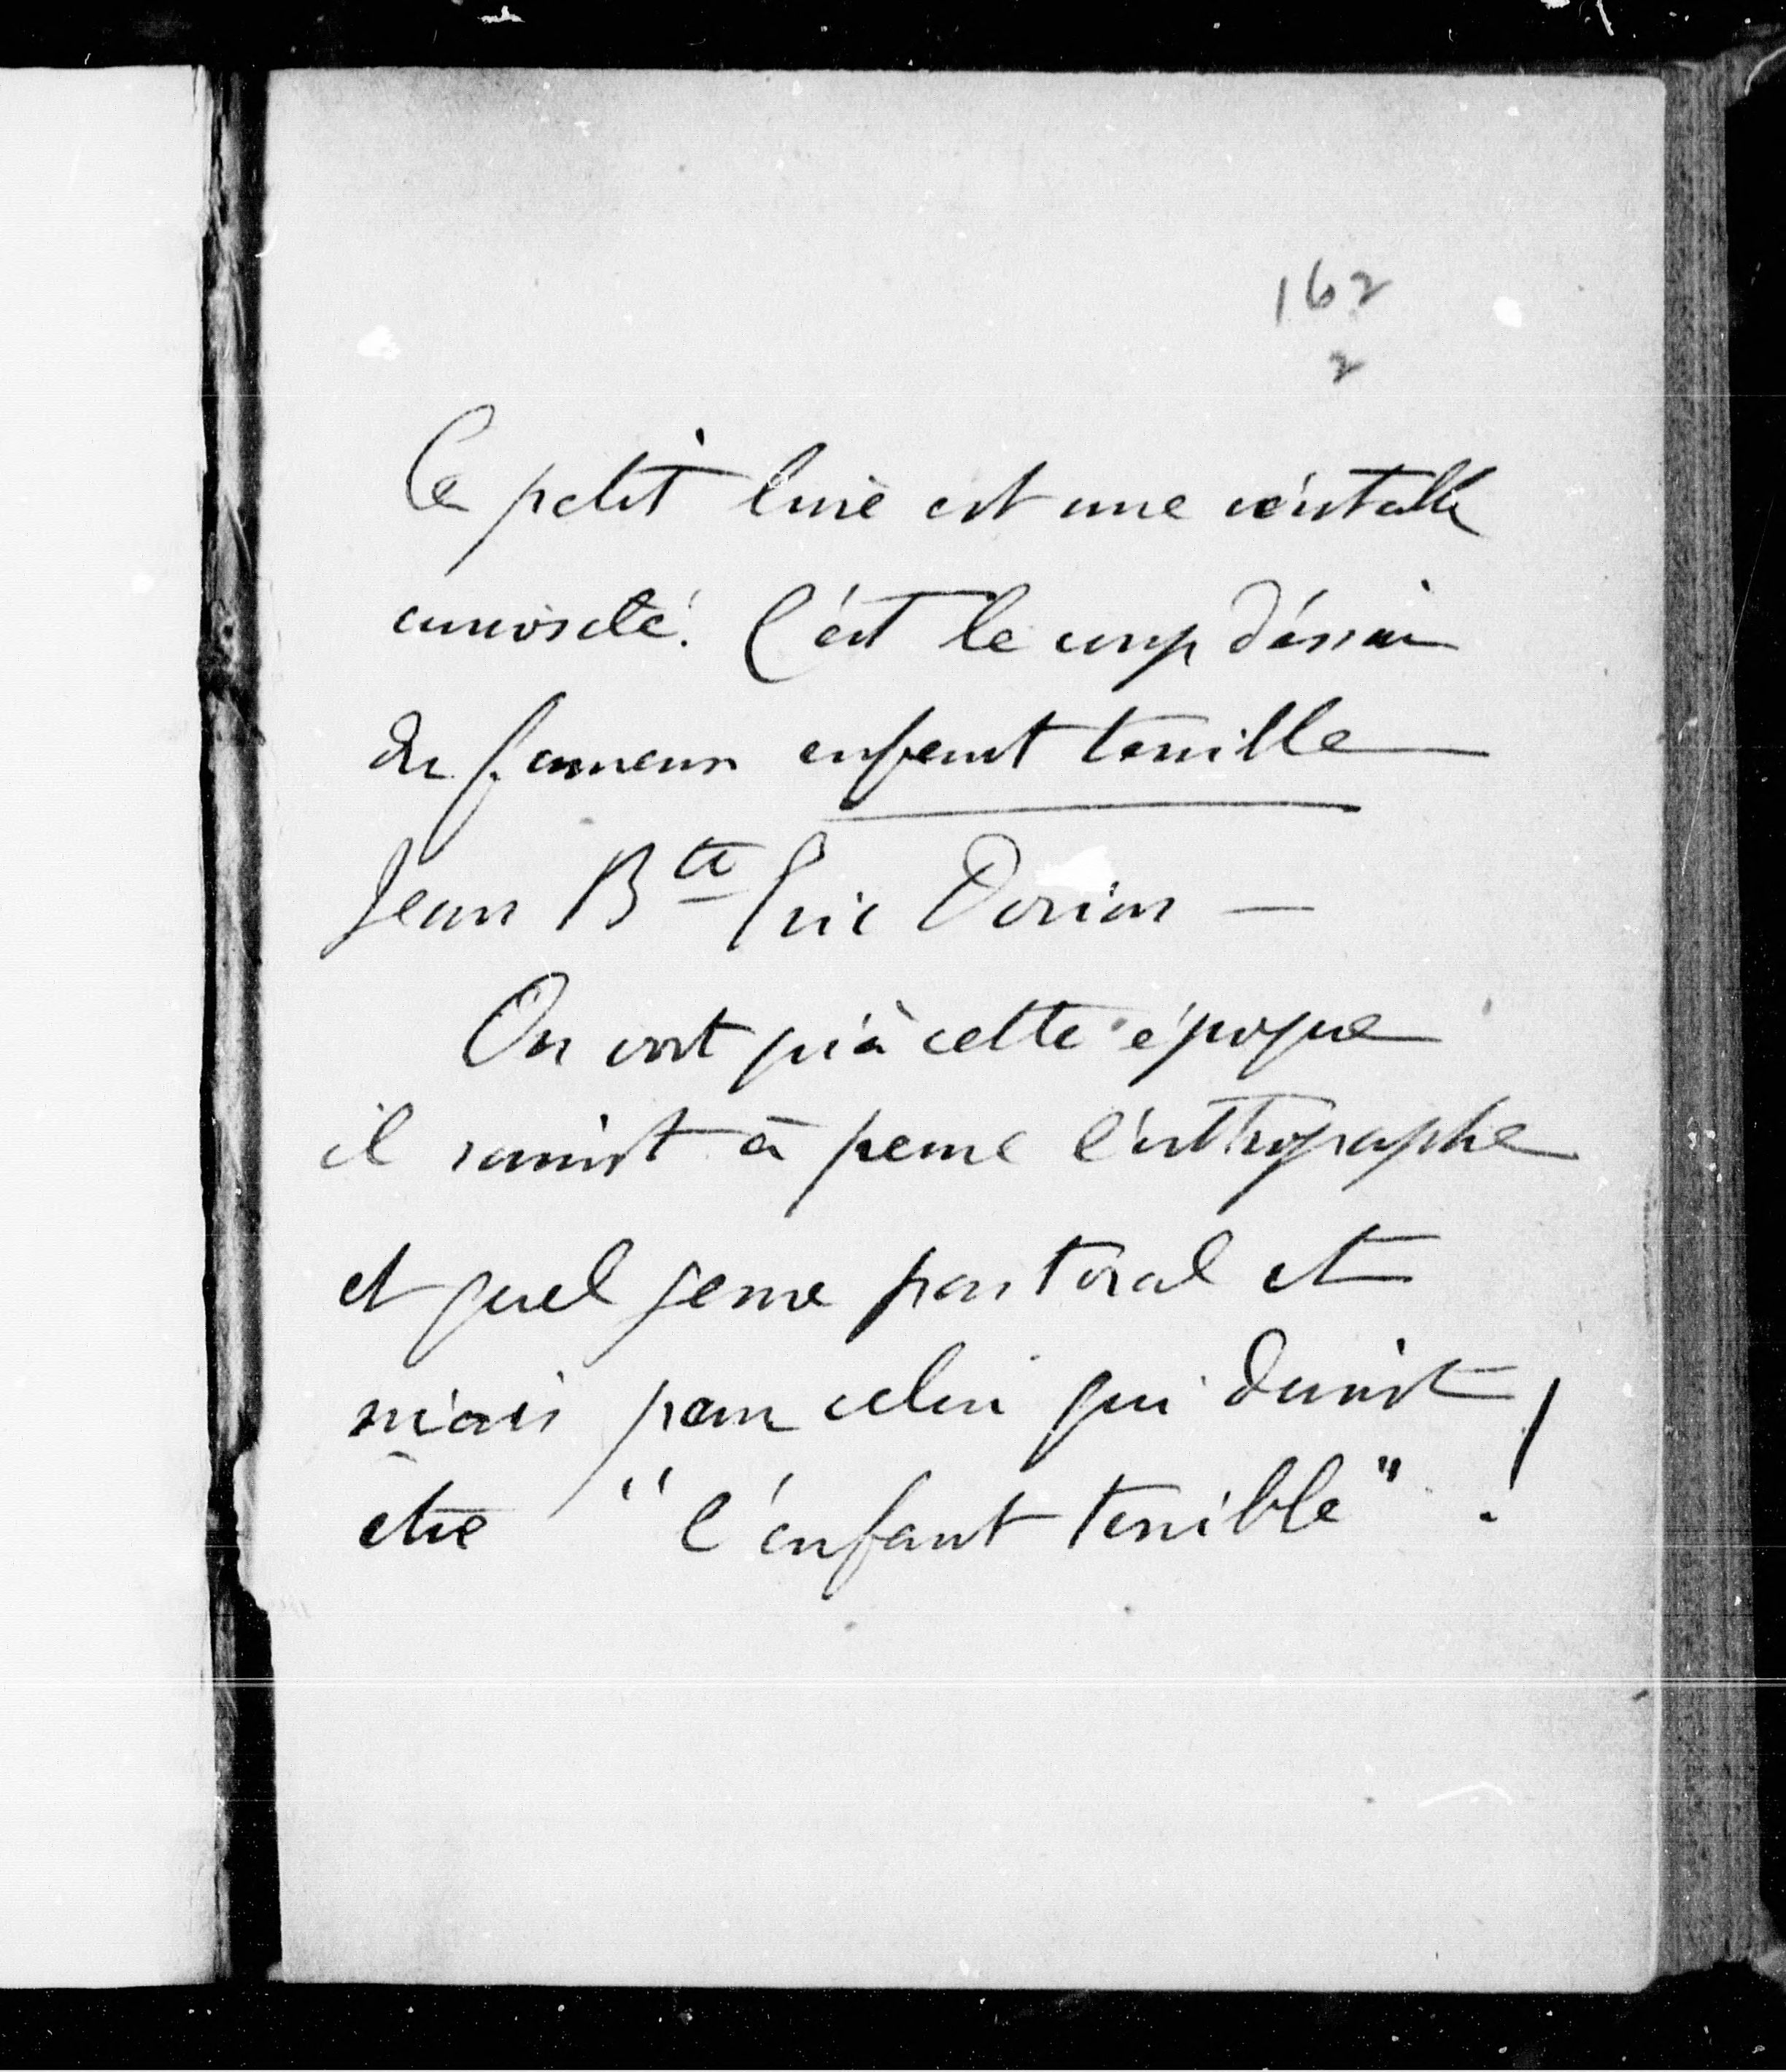 162
2
Ce petit livre est une véritable
curiosité. C'est le coup d'essai
du fameux enfant terrible
Jean Bte Eric Dorion —
On voit qu'à cette époque
il savait à peine l'orthographe
et quel genre pastoral et
niais pour celui qui devait
être "l'enfant terrible" !